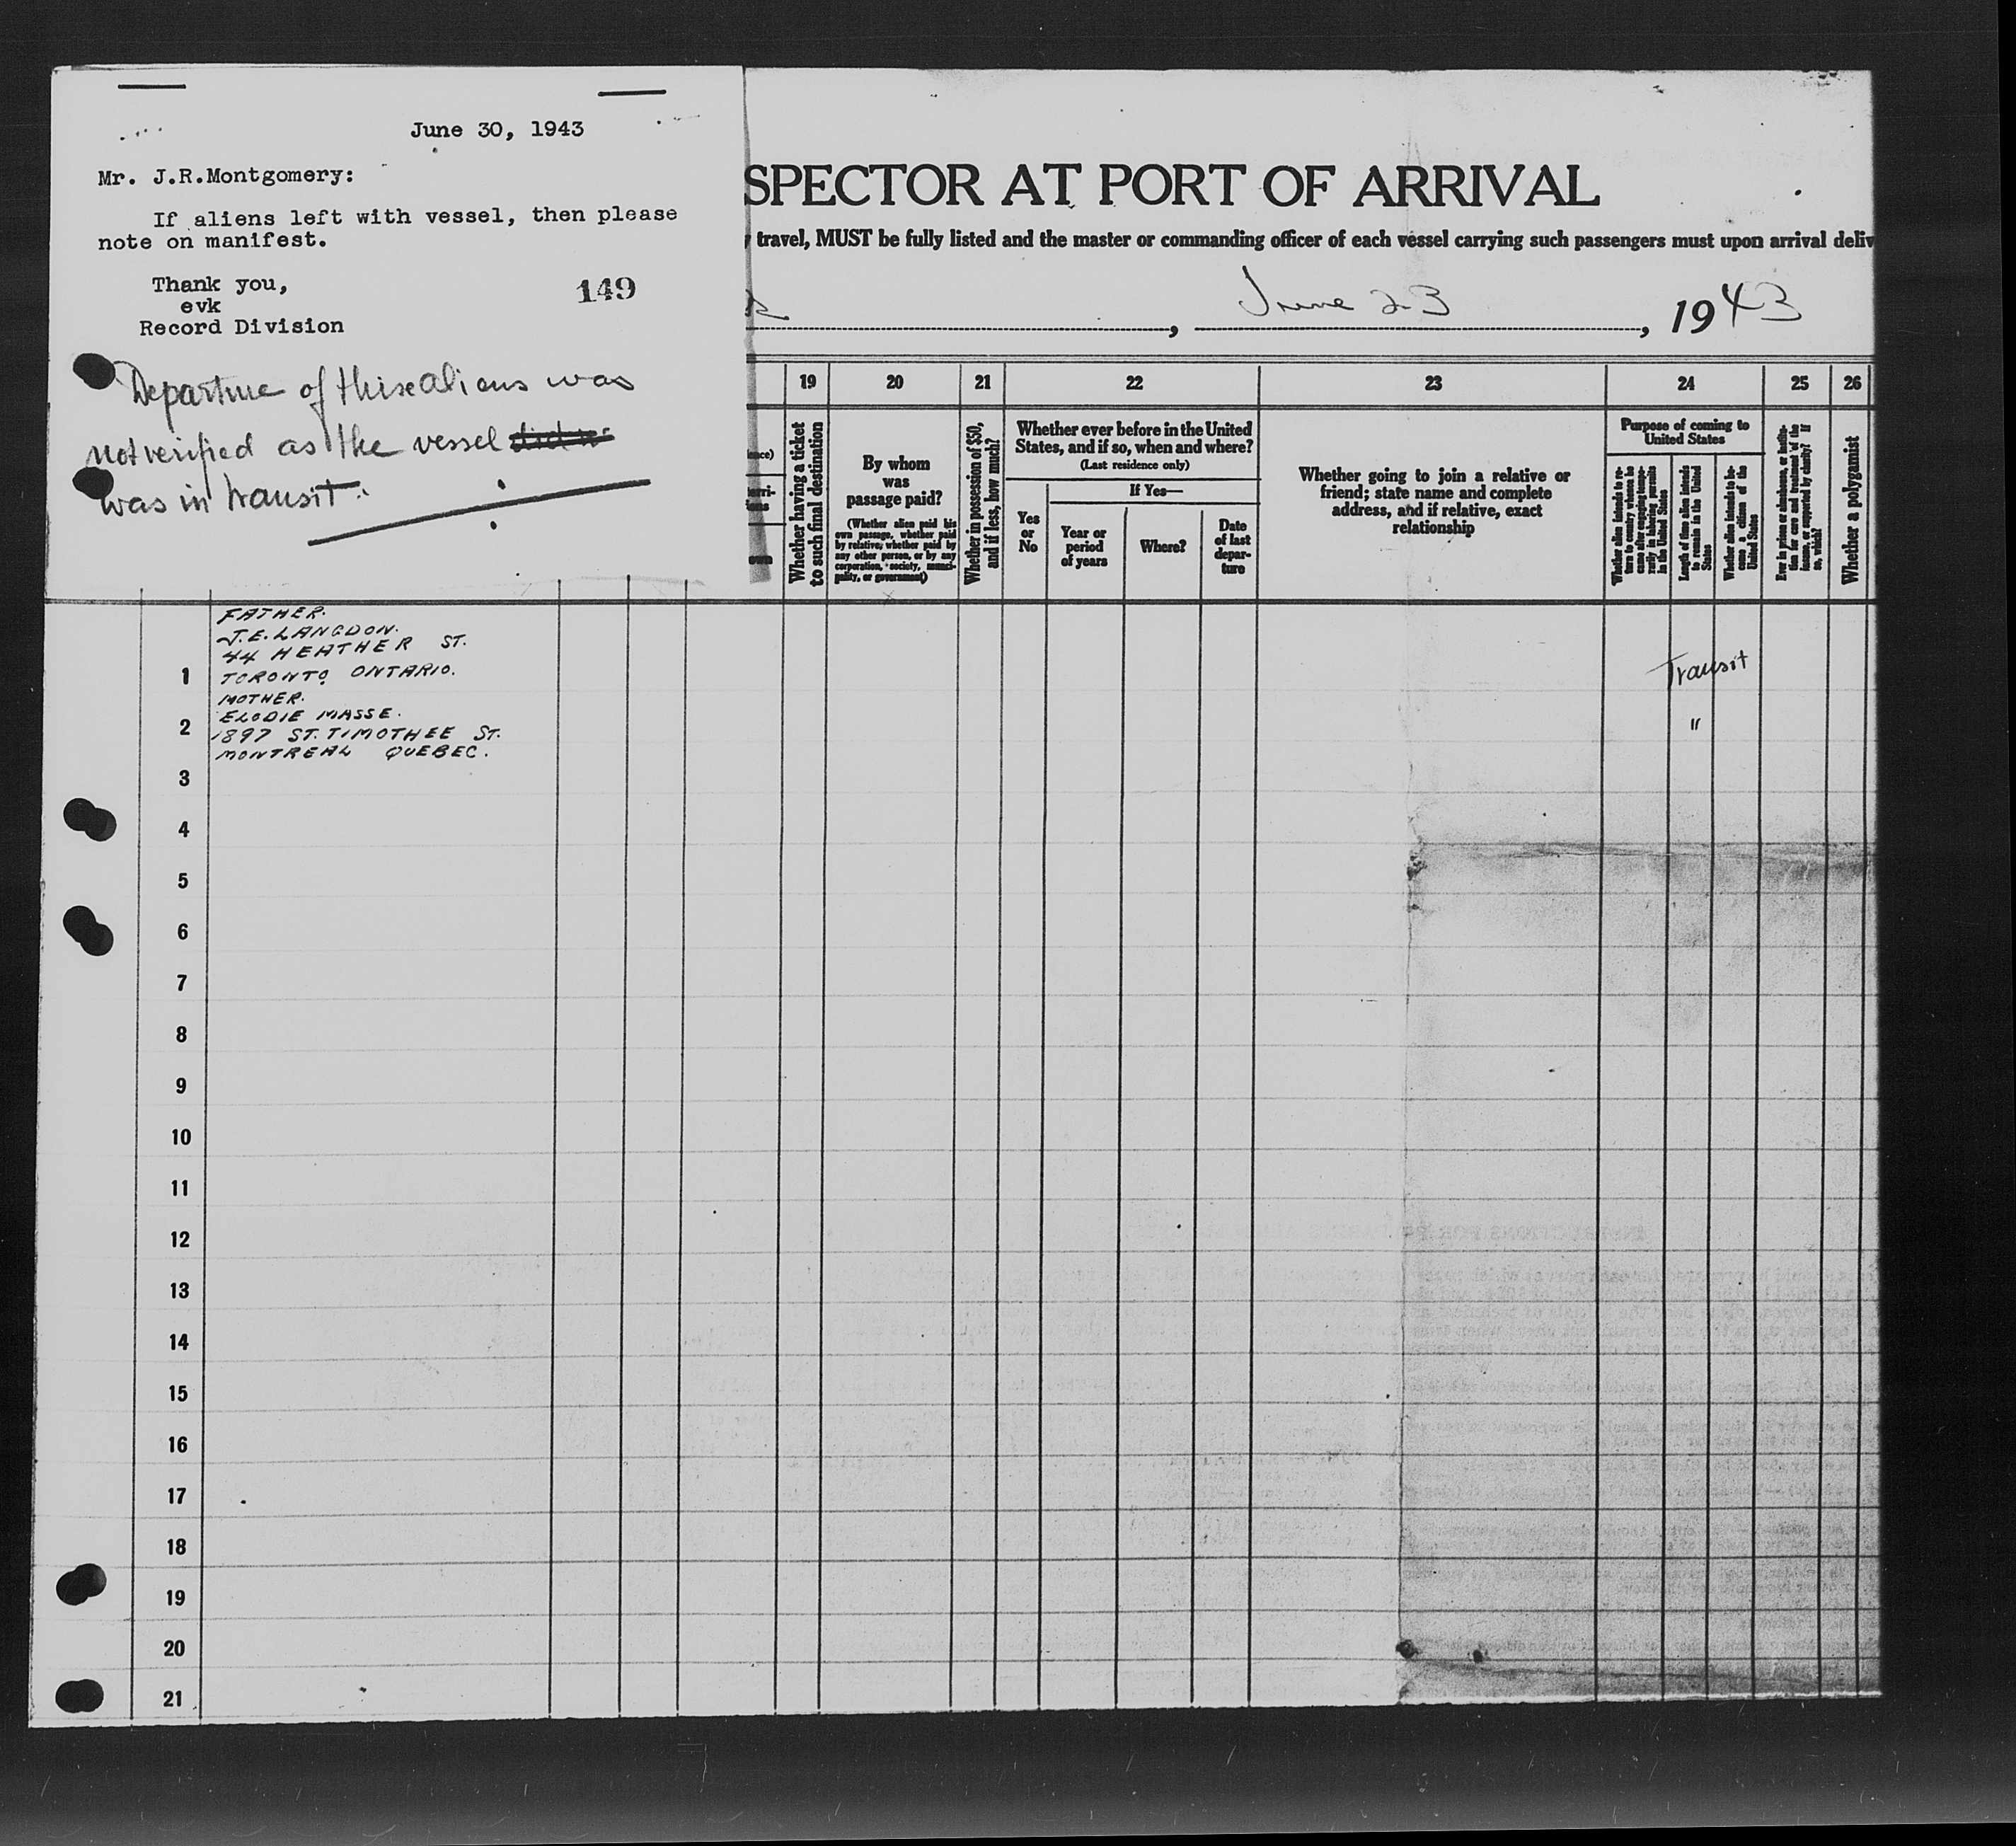 June 30, 1943
Mr. J.R.Montgomery:
If aliens left with vessel, then please
note on manifest.
Thank you,
evk
149
Record Division
Departure of these aliens was
not verified as the vessel
was in transit.
SPECTOR AT PORT OF ARRIVAL
travel, MUST be fully listed and the master or commanding officer of each vessel carrying such passengers must upon arrival deliv
June 23, 1943
19 20 21 22 23 24 25 26
Whether having a ticket
to such final destination
By whom
was
passage paid?
(Whether alien paid his
own passage, whether paid
by relative, whether paid by
any other person, or by any
corporation, society, munici-
pality, or government)
Whether in possession of $50,
and if less, how much?
Whether ever before in the United
States, and if so, when and where?
(Last residence only)
Yes
or
No
If Yes—
Year or
period
of years
Where?
Date
of last
depar-
ture
Whether going to join a relative or
friend; state name and complete
address, and if relative, exact
relationship
Purpose of coming to
United States
Whether alien intends to re-
turn to country whence he
came after engaging tempo-
rarily in laboring pursuits
in the United States
Length of time alien intends
to remain in the United
States
Whether alien intends to be-
come a citizen of the
United States
Ever in prison or almshouse, or institu-
tion for care and treatment of the
insane, or supported by charity? If
so, which?
Whether a polygamist
FATHER.
J.E. LANGDON.
44 HEATHER ST.
1 TORONTO ONTARIO. Transit
MOTHER.
ELODIE MASSE.
2 1897 ST. TIMOTHEE ST. "
MONTREAL QUEBEC.
3
4
5
6
7
8
9
10
11
12
13
14
15
16
17
18
19
20
21